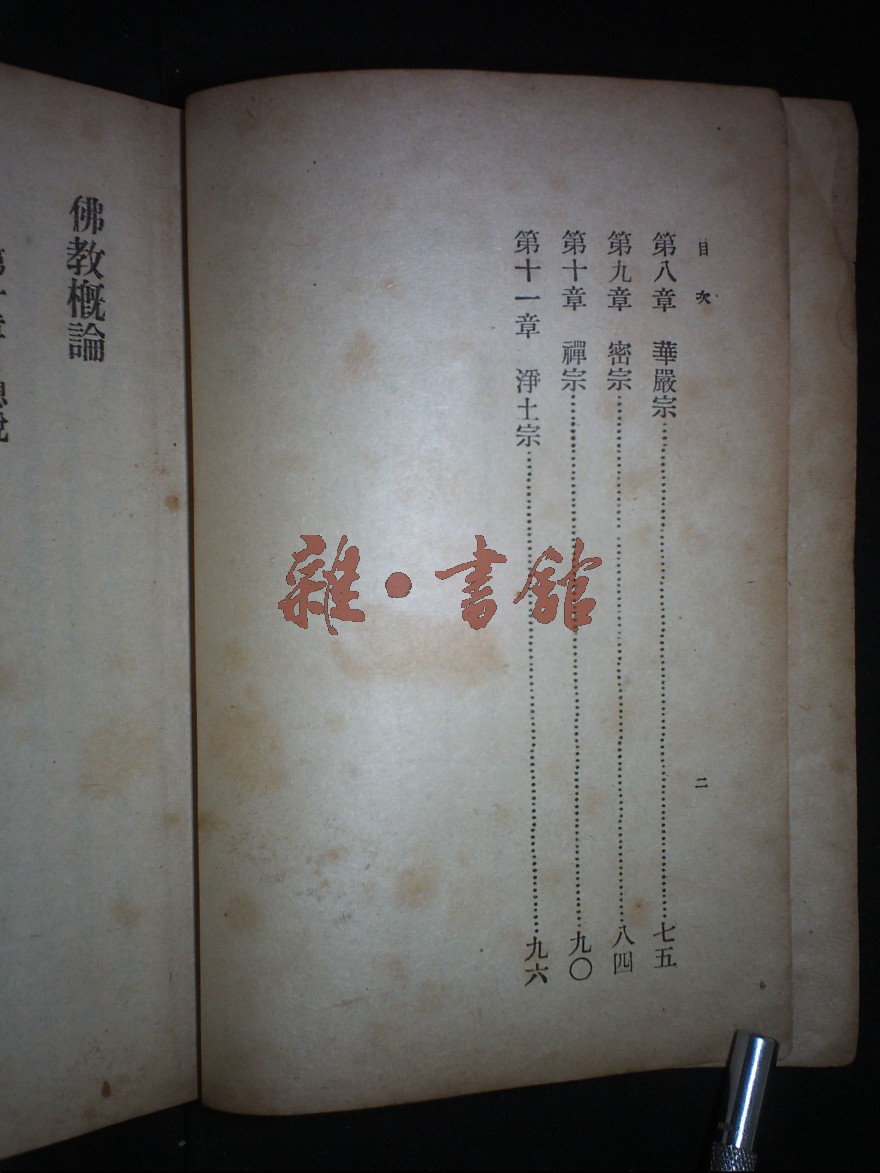 目次
二
第八章 華嚴宗……七五
第九章 密宗……八四
第十章 禪宗……九〇
第十一章 淨土宗……九六
佛教概論
雜·書館